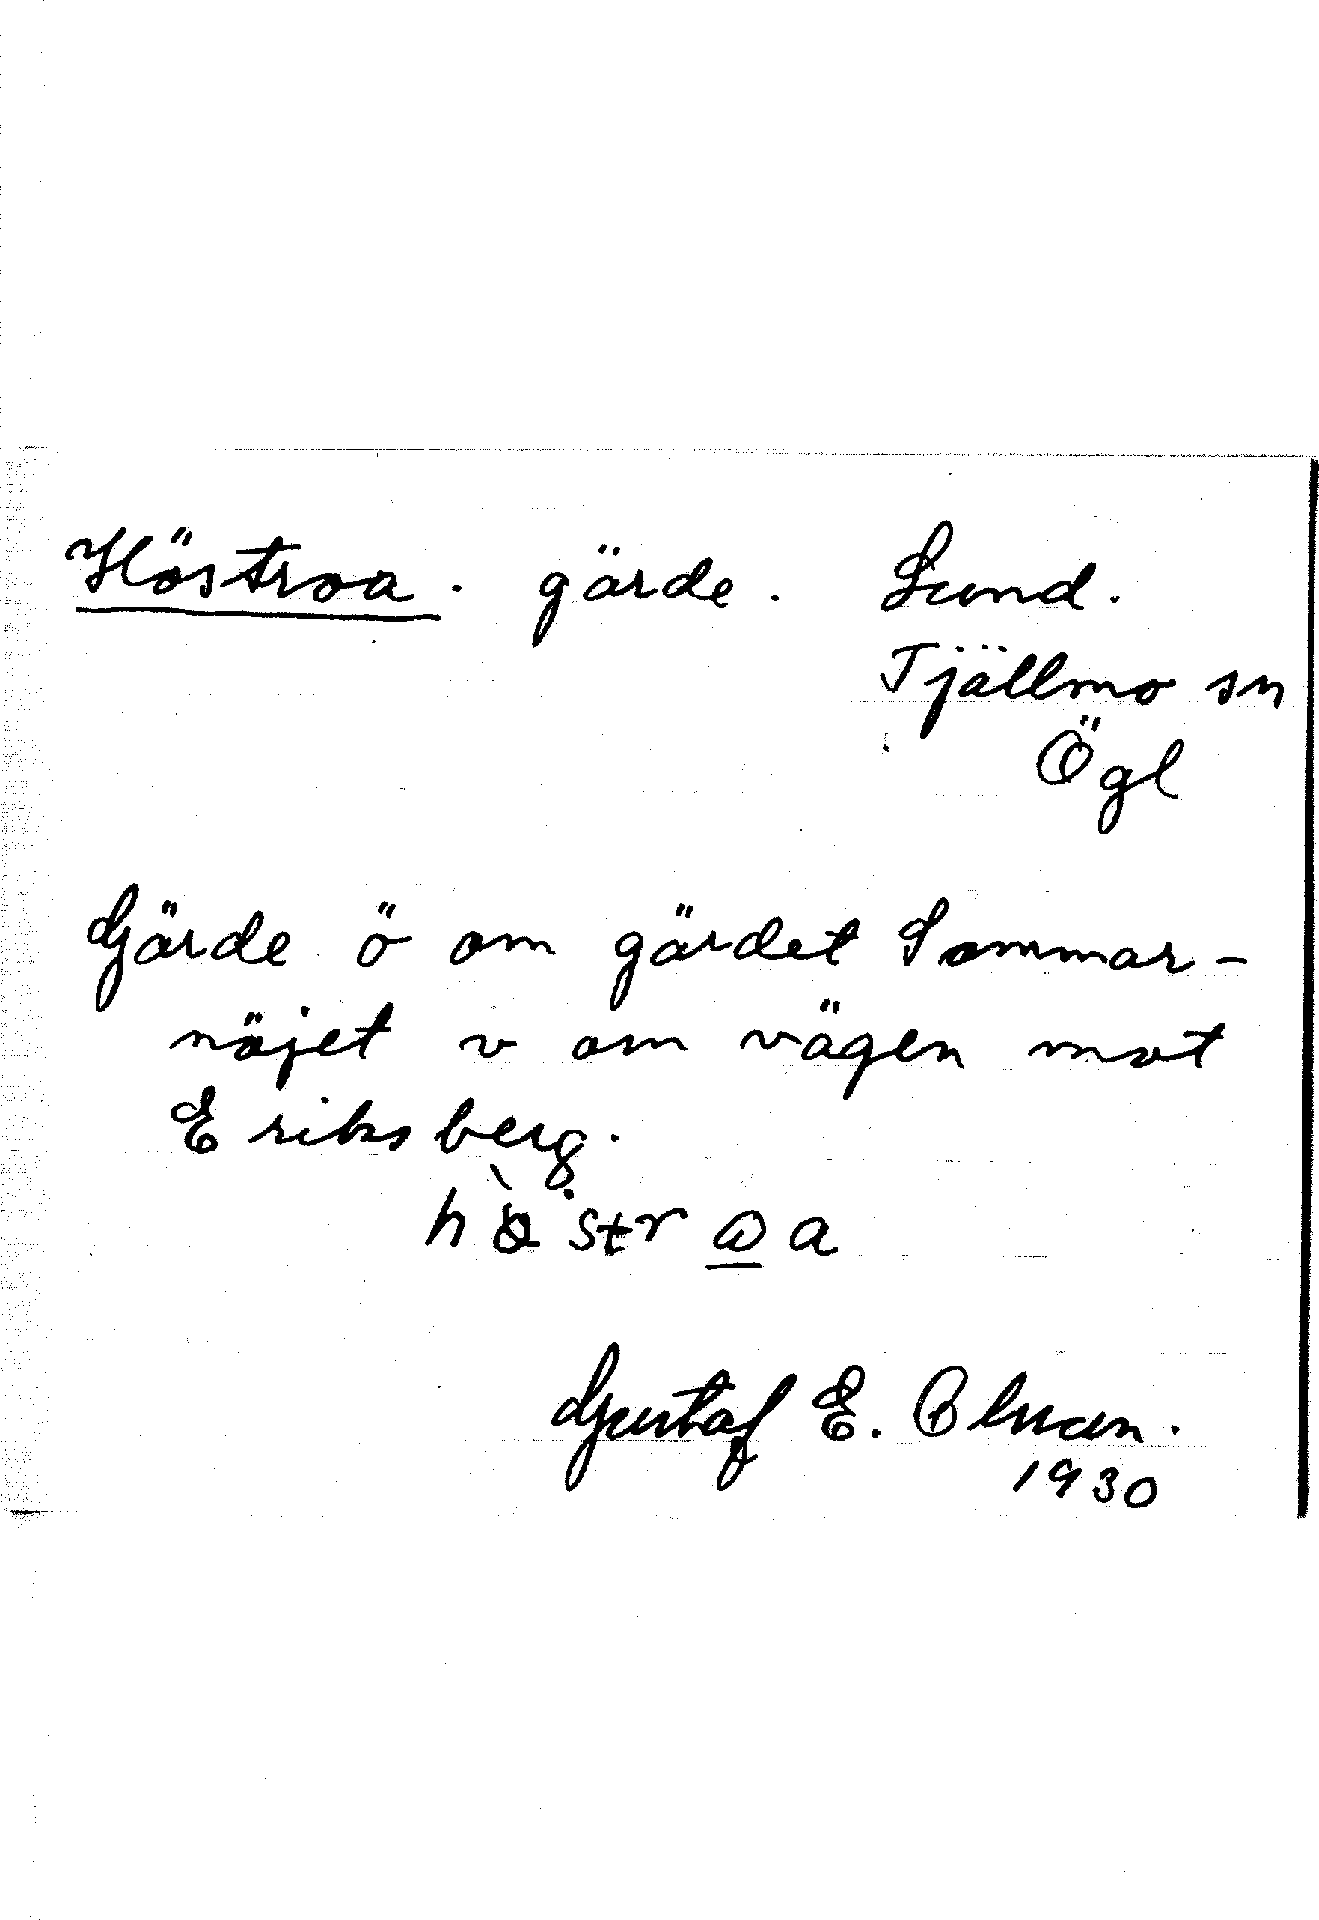 Höstroa. gärde. Lund.
Tjällmo sn
Ögl
Gärde ö om gärdet Sommar-
nöjet v om vägen mot
Eriksberg.
Gustaf E.
1930